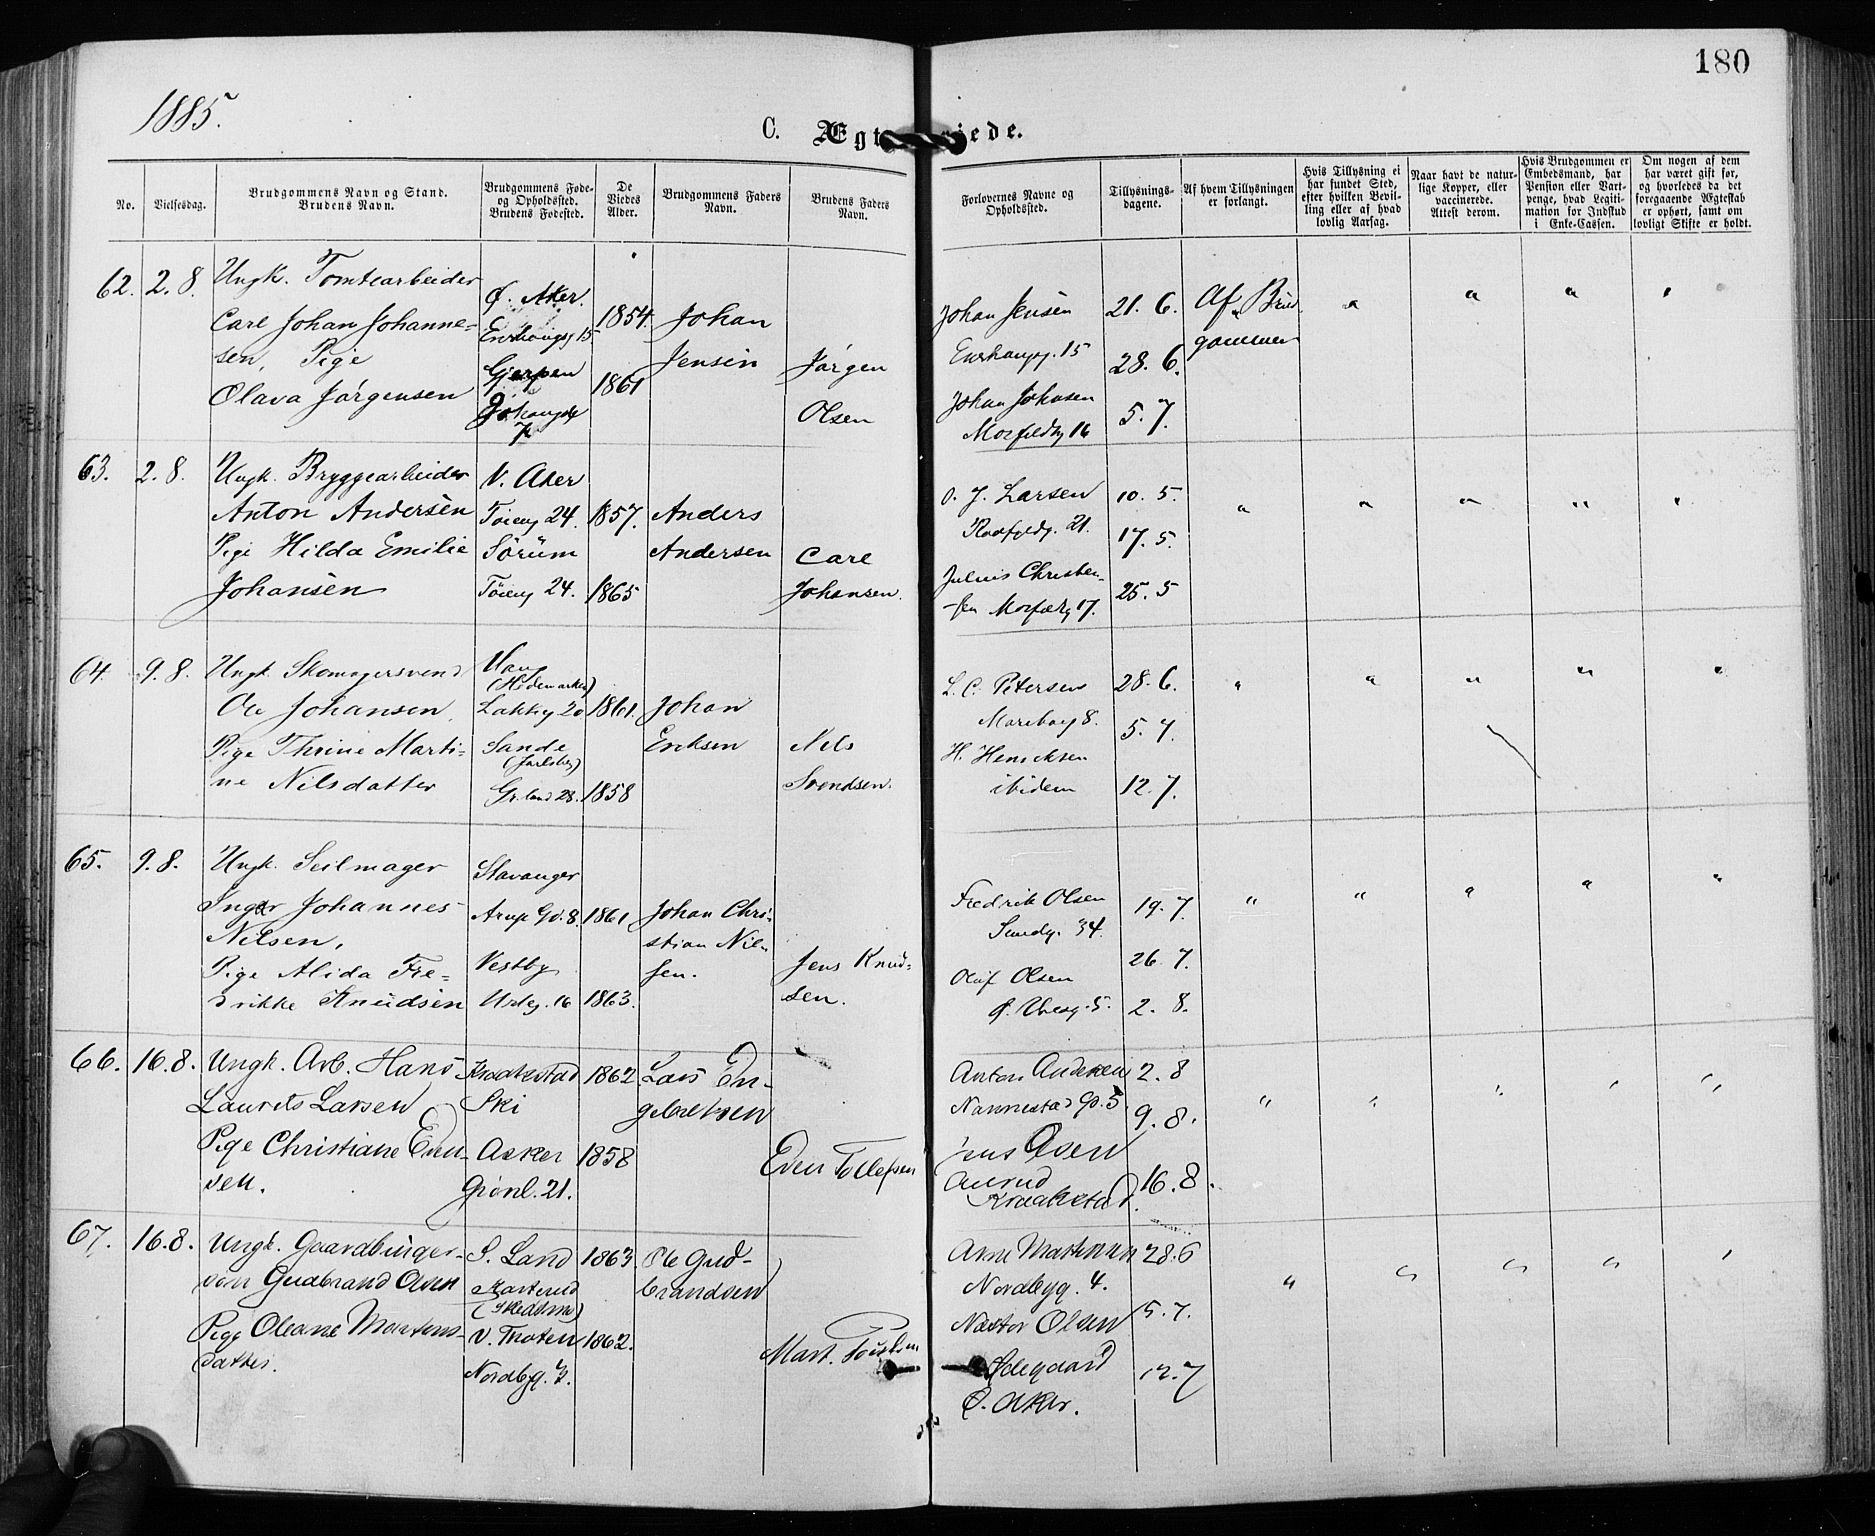 180
1885.
C. Ægt iede.
No.
Vielsesdag.
Brudgommens Navn og Stand.
Brudens Navn.
Brudgommens Føde-
og Opholdssted.
Brudens Fødested.
De
Viedes
Alder.
Brudgommens Faders
Navn.
Brudens Faders
Navn.
Forlovernes Navne og
Opholdssted.
Tillysnings-
dagene.
Af hvem Tillysningen
er forlangt.
Hvis Tillysning ei
har fundet Sted,
efter hvilken Bevil-
ling eller af hvad
lovlig Aarsag.
Naar havt de natur-
lige Kopper, eller
vaccinerede.
Attest derom.
Hvis Brudgommen er
Embedsmand, har
Pension eller Vart-
penge, hvad Legiti-
mation for Indskud
i Enke-Cassen.
Om nogen af dem
har været gift før,
og hvorledes da det
foregaaende Ægteskab
er ophørt, samt om
lovligt Skifte er holdt.
62. 2. 8.
Ungk. Tomtearbeider
Carl Johan Johanne-
sen, Pige
Olava Jørgensen
Ø. Aker.
15
Gjerpen
1854.
1861
Johan
Jensen
Jørgen
Olsen
Johan Jensen
Enerhaugg. 15
Johan Johnsen
16
21. 6.
28. 6.
5. 7.
Af Brud
gommen
" " " "
63. 2. 8.
Ungk. Bryggearbeider
Anton Andersen
Pige Hilda Emilie
Johansen
V. Aker
Tøieng 24.
Sørum
Tøieng 24.
1857.
1865
Anders
Andersen
Carl
Johansen.
O. J. Larsen
21.
Julius Christen-
sen 17.
10. 5.
17. 5.
25. 5
" " " " "
64 9. 8.
Ungk. Skomagersvend
Ole Johansen,
Pige Thrine Marti-
ne Nilsdatter
Vang
(Hedemarken)
Lakkeg 20
Sande
(Jarlsberg)
Grland 28.
1861.
1858
Johan
Eriksen
Nils
Svendsen.
L. C. Petersen
8.
H. Henriksen
ibidem
28. 6.
5. 7.
12. 7.
" " " " "
65. 9. 8.
Ungk. Seilmager
Inger Johannes
Nilsen,
Pige Alida Fre-
drikke Knudsen
Stavanger
Arups Gd. 8.
Vestby
Urteg. 16
1861
1863.
Johan Chri-
stian Niel-
sen.
Jens Knud-
sen.
Fredrik Olsen
34.
Oluf Olsen
5.
19. 7.
26. 7.
2. 8.
" " " " "
66. 16. 8.
Ungk. Arb. Hans
Laurits Larsen
Pige Christiane Even-
sen.
Kraakstad
Ski
Asker
Grønl. 21.
1862
1858
Lars En-
gebretsen
Even Tollefsen
Anton Andersen
Nannestad Gd. 5
Jens Olsen
Kraakstad.
2. 8
9. 8.
16. 8.
" " " " "
67. 16. 8.
Ungk. Gaardbruger-
søn Gudbrand Olsen
Pige Oleane Martens-
datter.
S. Land
(Skedsmo)
V. Thoten
Nordbyg. 4.
1863.
1862.
Ole Gud-
brandsen
Mart.
Arne Martinsen
Nordbyg. 4.
Olsen
Ødegaard
Ø. Aker.
28. 6
5. 7.
12. 7
" " " " "